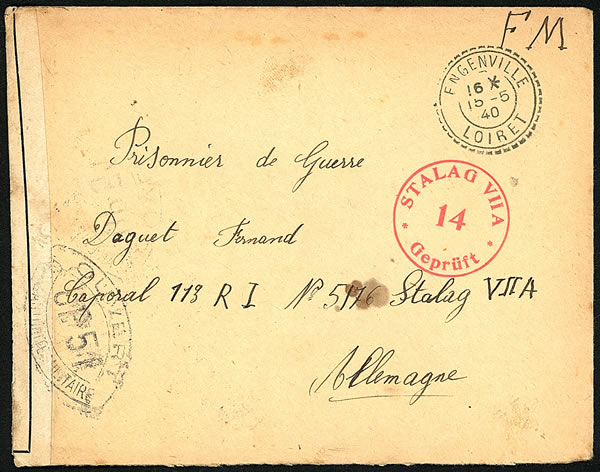 FM
ENGENVILLE
16 *
15 -5
40
LOIRET
Prisonnier de Guerre
* STALAG VII A *
14
Geprüft
Daguet Fernand
Caporal 113 R I N° 5176 Stalag VII A
Allemagne
OUVERT